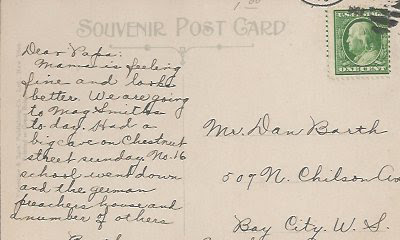 SOUVENIR POST CARD
Dear Papa:
Mama is feeling
fine and looks
better. We are going
to Mag Smiths
to day. Had a
big cave on Chestnut
street sunday. No. 16
school went down
and the german
preachers house and
a number of others
Mr. Dan Barth
509 N. Chilson Av
Bay City W. S.
ONE CENT